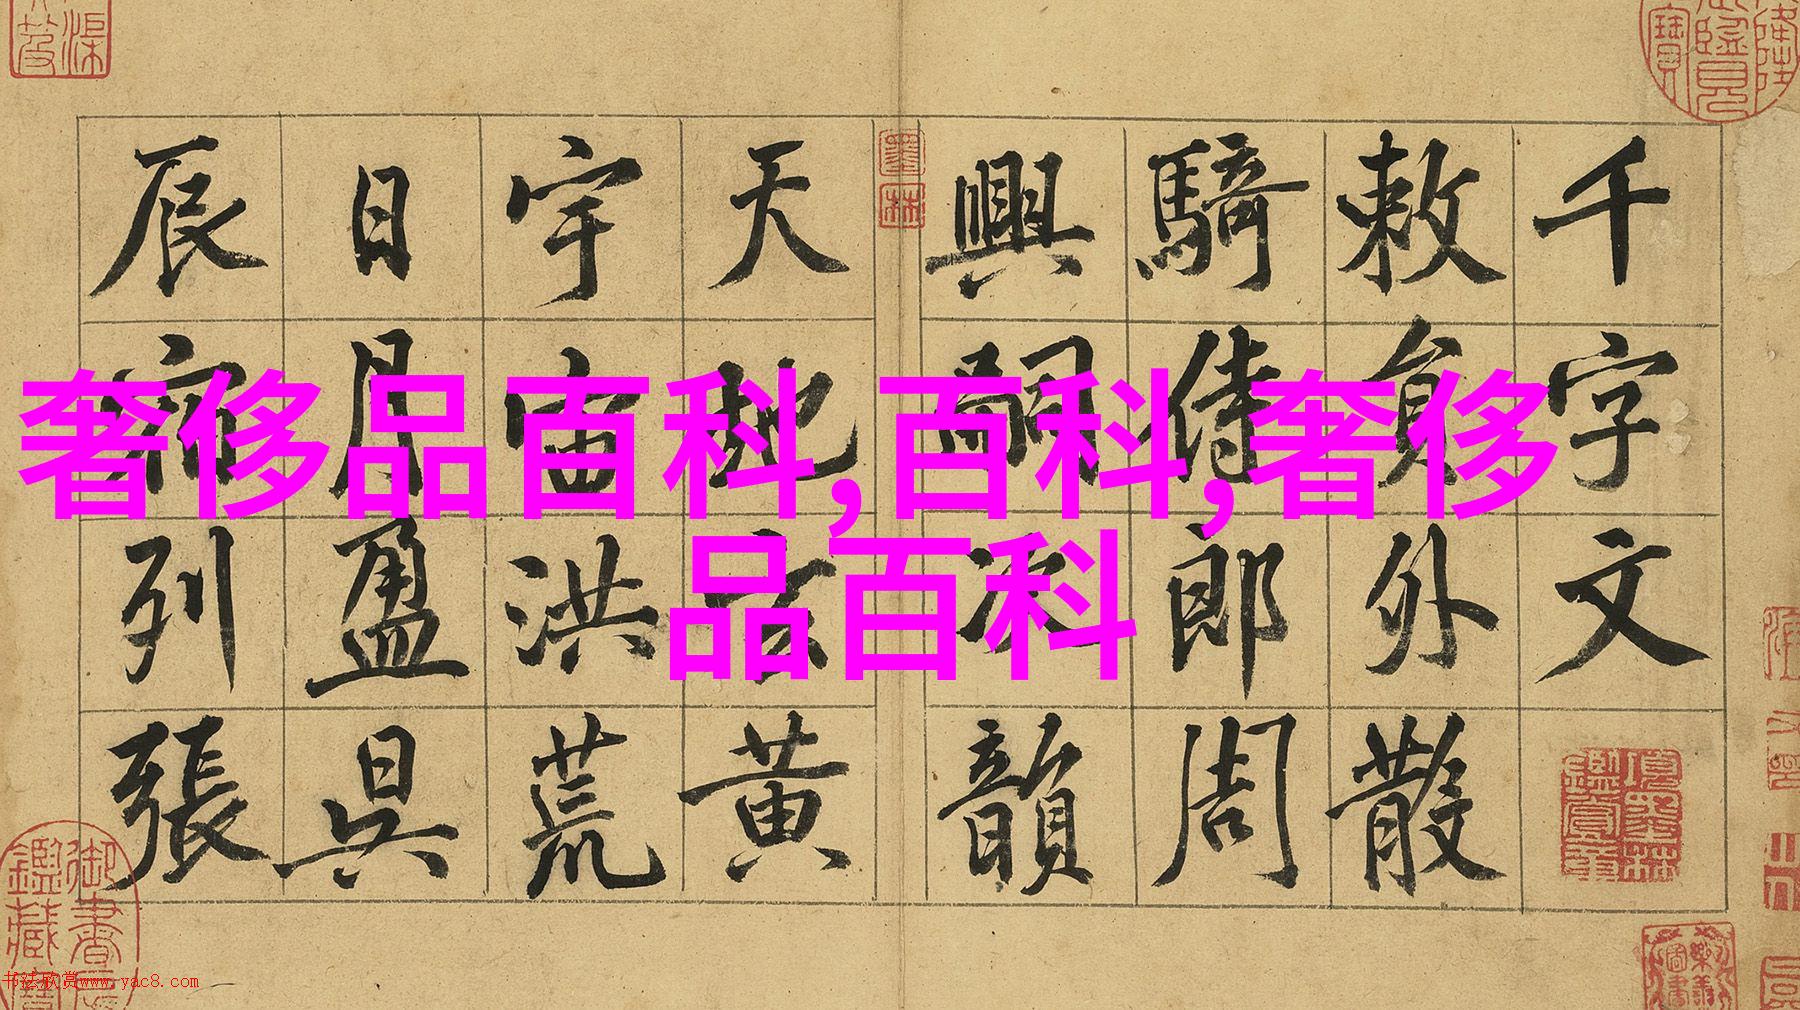 奢侈品百科,百科,奢侈
品百科
千字文
敕員外散
騎侍郎周
興嗣次韻
天地玄黄
宇宙洪荒
日月盈昃
辰宿列張
墨林
书法欣赏www.yac8.com